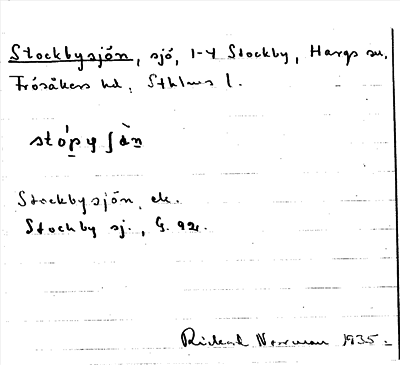 Stockbysjön, sjö, 1-4 Stockby, Hargs sn.
Frösåkers hd, Sthlms l.
stópyʃàn
Stockbysjön, ek.
Stockby sj., G. 92.
Rickard Norrman 1935